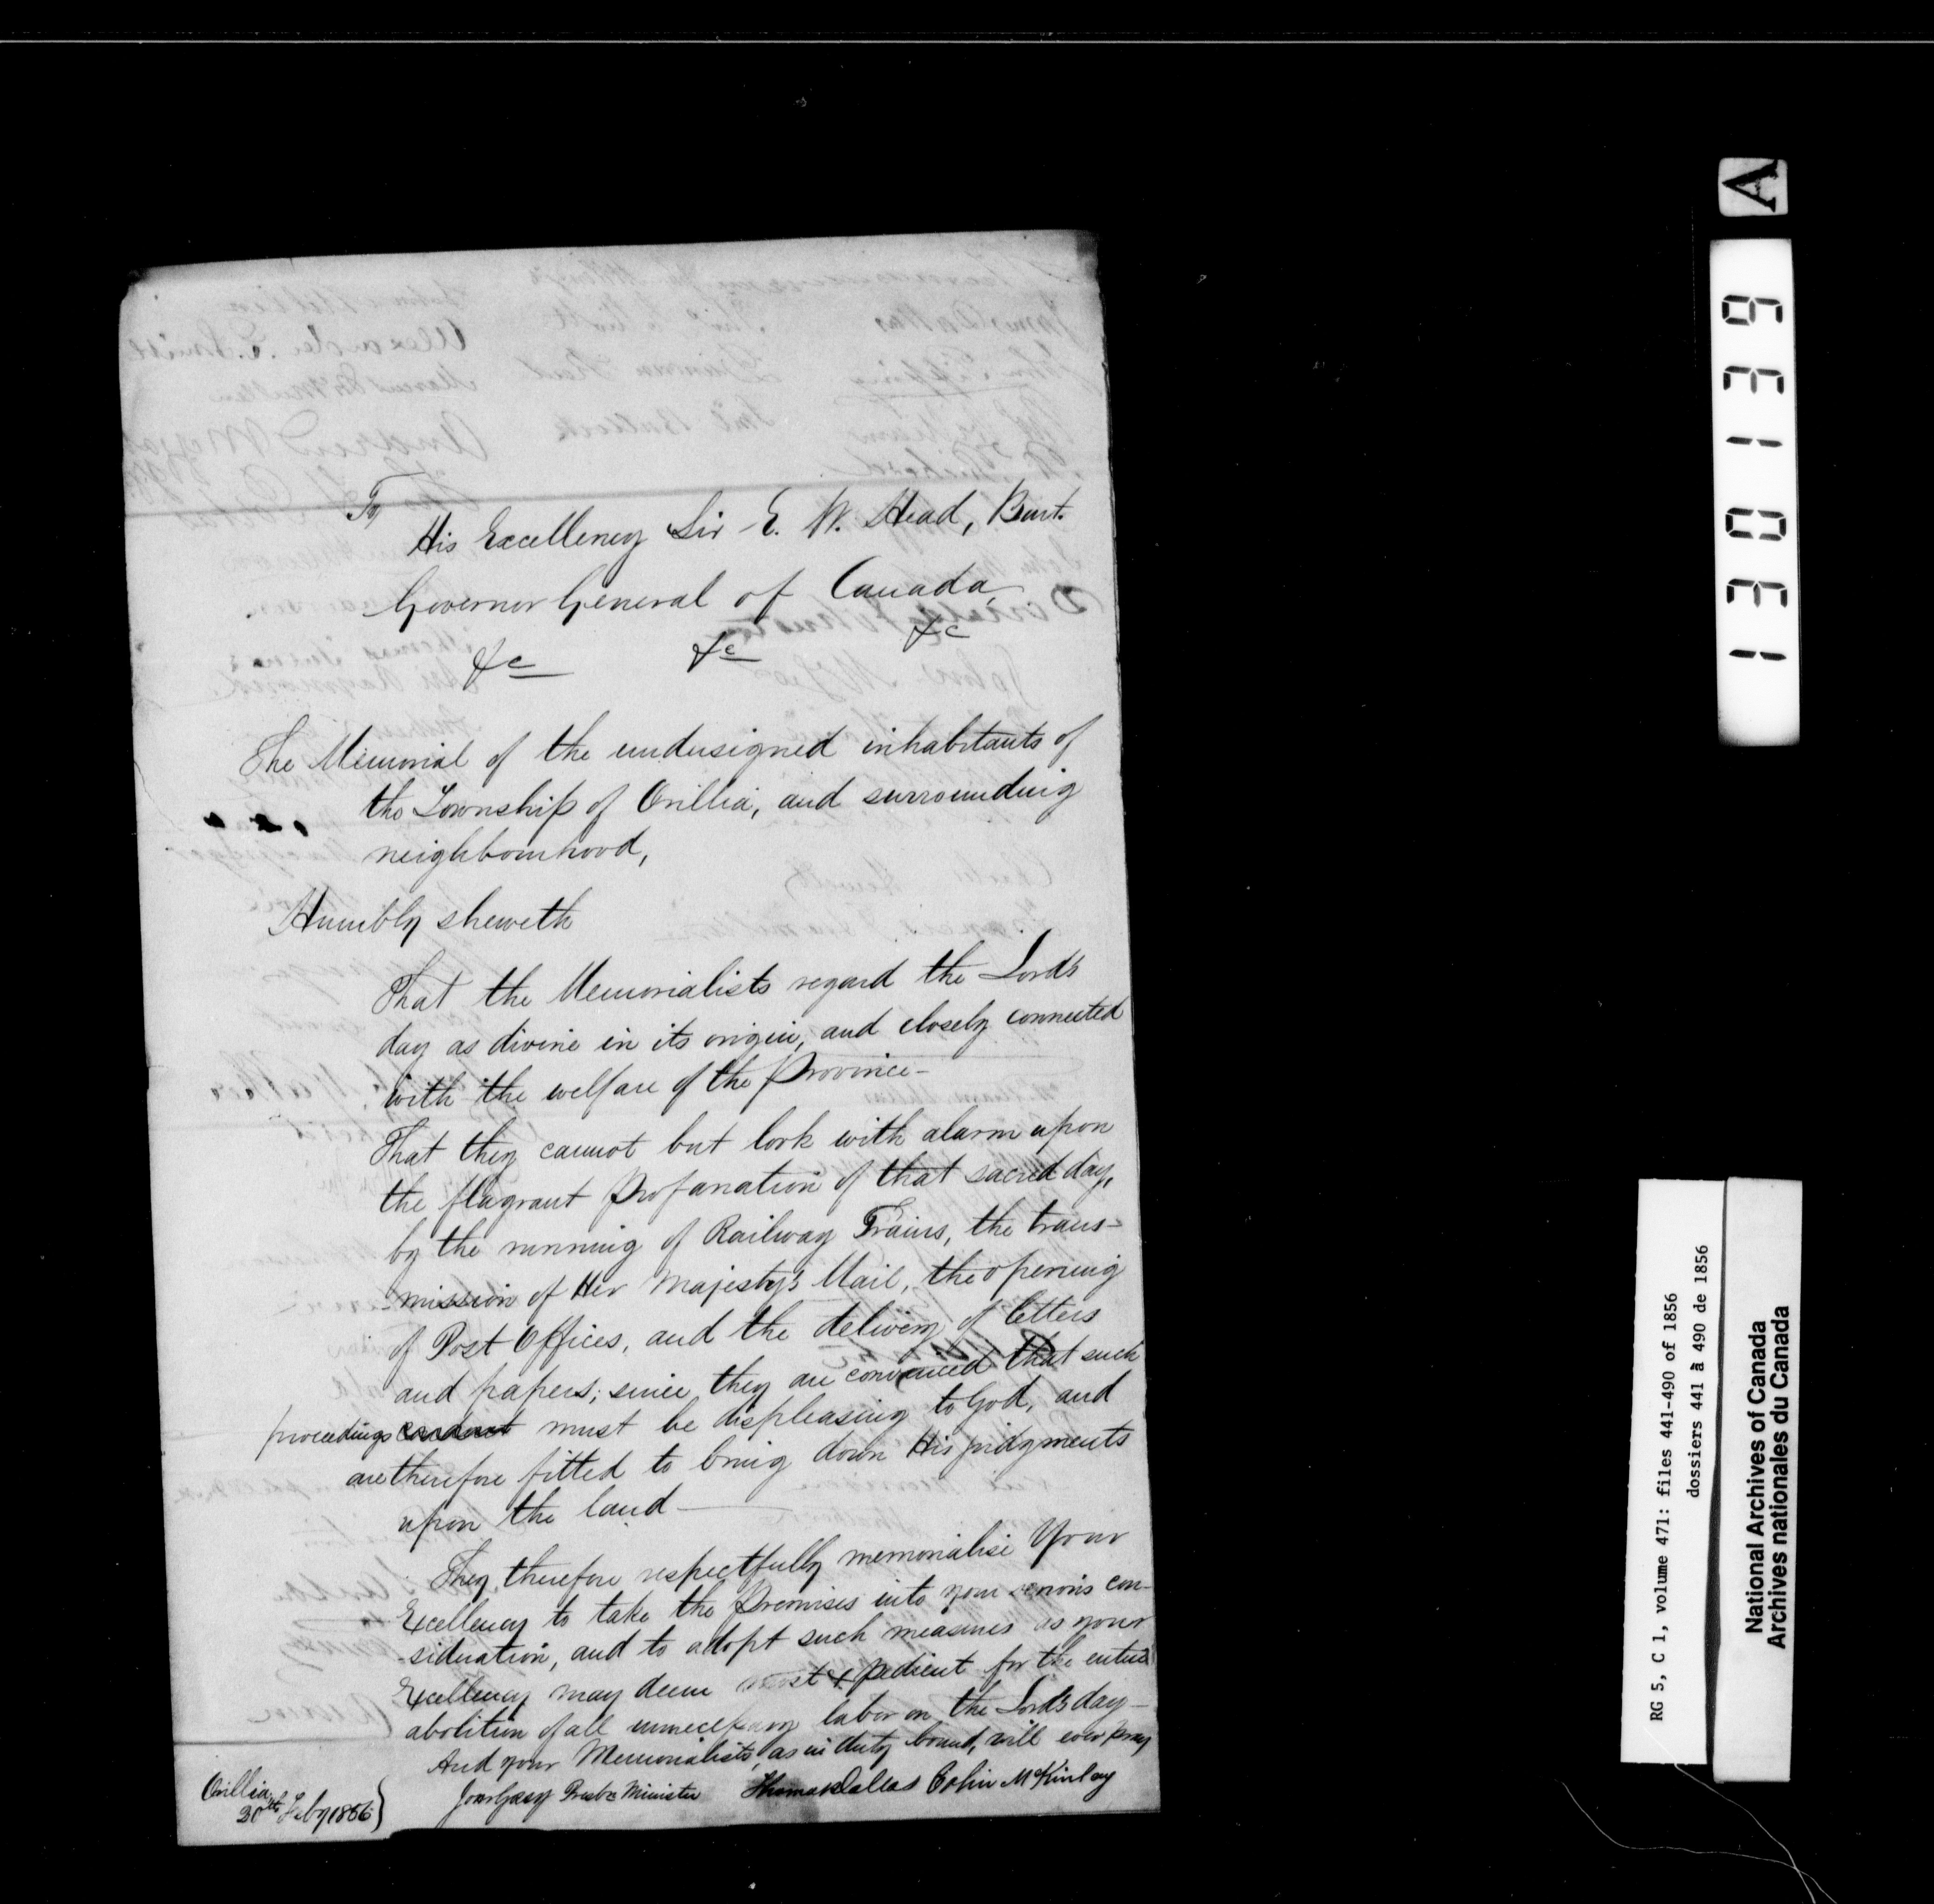 To
His Excellency Sir E. W. Head, Bart.
Governor General of Canada,
&c &c &c
The Memorial of the undersigned inhabitants of
the Township of Orillia, and surrounding
neighbourhood,
Humbly sheweth
That the Memorialists regard the Lord's
day as divine in its origin, and closely connected
with the welfare of the Province-
That they cannot but look with alarm upon
the flagrant profanation of that sacred day,
by the running of Railway Trains, the trans-
mission of Her Majesty's Mail, the opening
of Post Offices, and the delivery of letters
and papers; since they are convinced that such
proceedings conduct must be displeasing to God, and
are therefore fitted to bring down His judgments
upon the land-
They therefore respectfully memorialise Your
Excellency to take the premises into your serious con-
-sideration, and to adopt such measures as your
Excellency may deem most expedient for the entire
abolition of all unnecessary labor on the Lord's day-
And your Memorialists, as in duty bound, will ever pray
Orillia
Feby 1856
John Gray Presbn Minister Thomas Dallas Colin McKinlay
A
1301139
RG 5, C 1, volume 471: files 441-490 of 1856
dossiers 441 à 490 de 1856
National Archives of Canada
Archives nationales du Canada